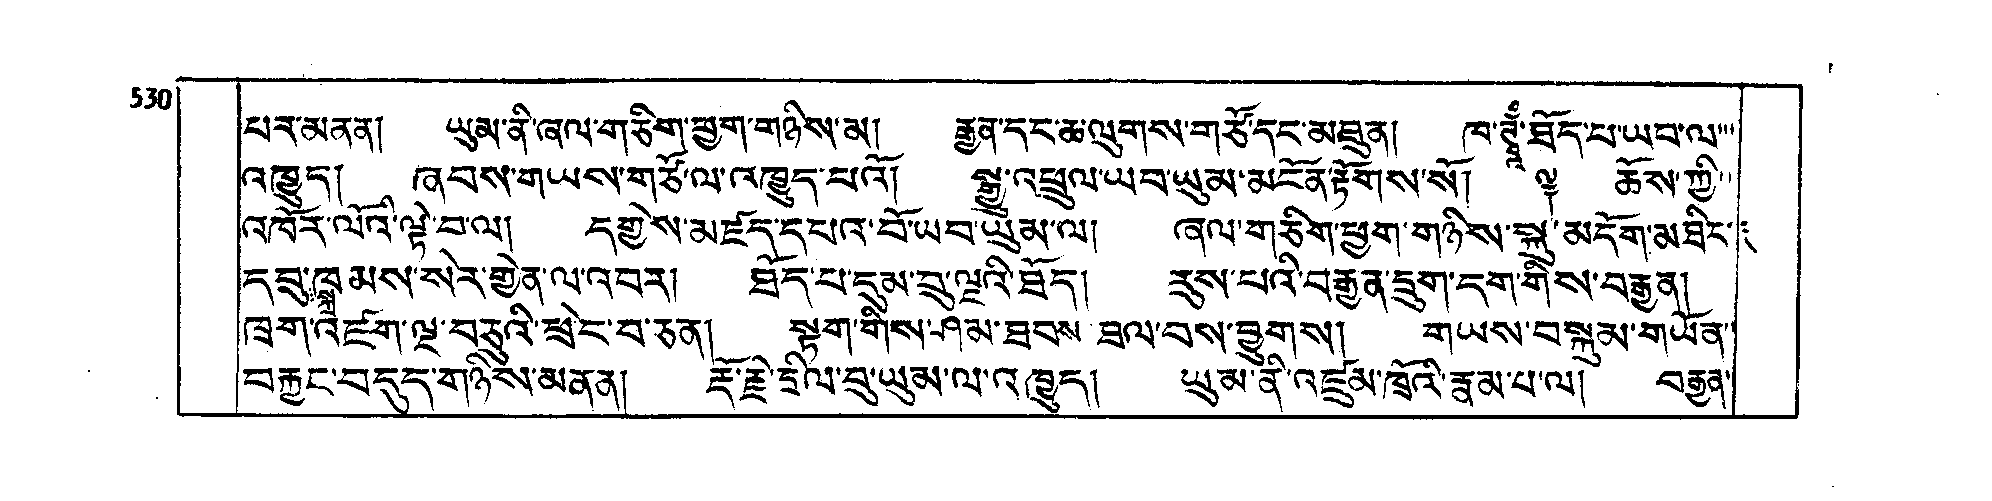 530
པར་མནན། ཡུམ་ནི་ཞལ་གཅིག་ཕྱག་གཉིས་མ། རྒྱན་དང་ཆ་ལུགས་གཙོ་དང་མཐུན། ཁ་ཊྭཱཾ་ཐོད་པ་ཡབ་ལ་
འཁྱུད། ཞབས་གཡས་གཙོ་ལ་འཁྱུད་པའོ། སྒྱུ་འཕྲུལ་ཡབ་ཡུམ་མངོན་རྟོགས་སོ། ཆོས་ཀྱི་
འཁོར་ལོའི་ལྟེ་བ་ལ། དགྱེས་མཛད་དཔའ་བོ་ཡབ་ཡུམ་ལ། ཞལ་གཅིག་ཕྱག་གཉིས་སྐུ་མདོག་མཐིང་
དབུ་སྐྲ་ཁམས་སེར་གྱེན་ལ་འབར། ཐོད་པ་དུམ་བུ་ལྔའི་ཐོད། རུས་པའི་བརྒྱན་དྲུག་དག་གིས་བརྒྱན།
ཁྲག་འཛག་ལྔ་བཅུའི་ཕྲེང་བ་ཅན། སྟག་གིས་ཤམ་ཐབས་ ཐལ་བས་བྱུགས། གཡས་བསྐུམ་གཡོན་
བརྐྱང་བདུད་གཉིས་མནན། རྡོ་རྗེ་དྲིལ་བུ་ཡུམ་ལ་འཁྱུད། ཡུམ་ནི་འཛུམ་ཁྲོའི་རྣམ་པ་ལ། བརྒྱན་